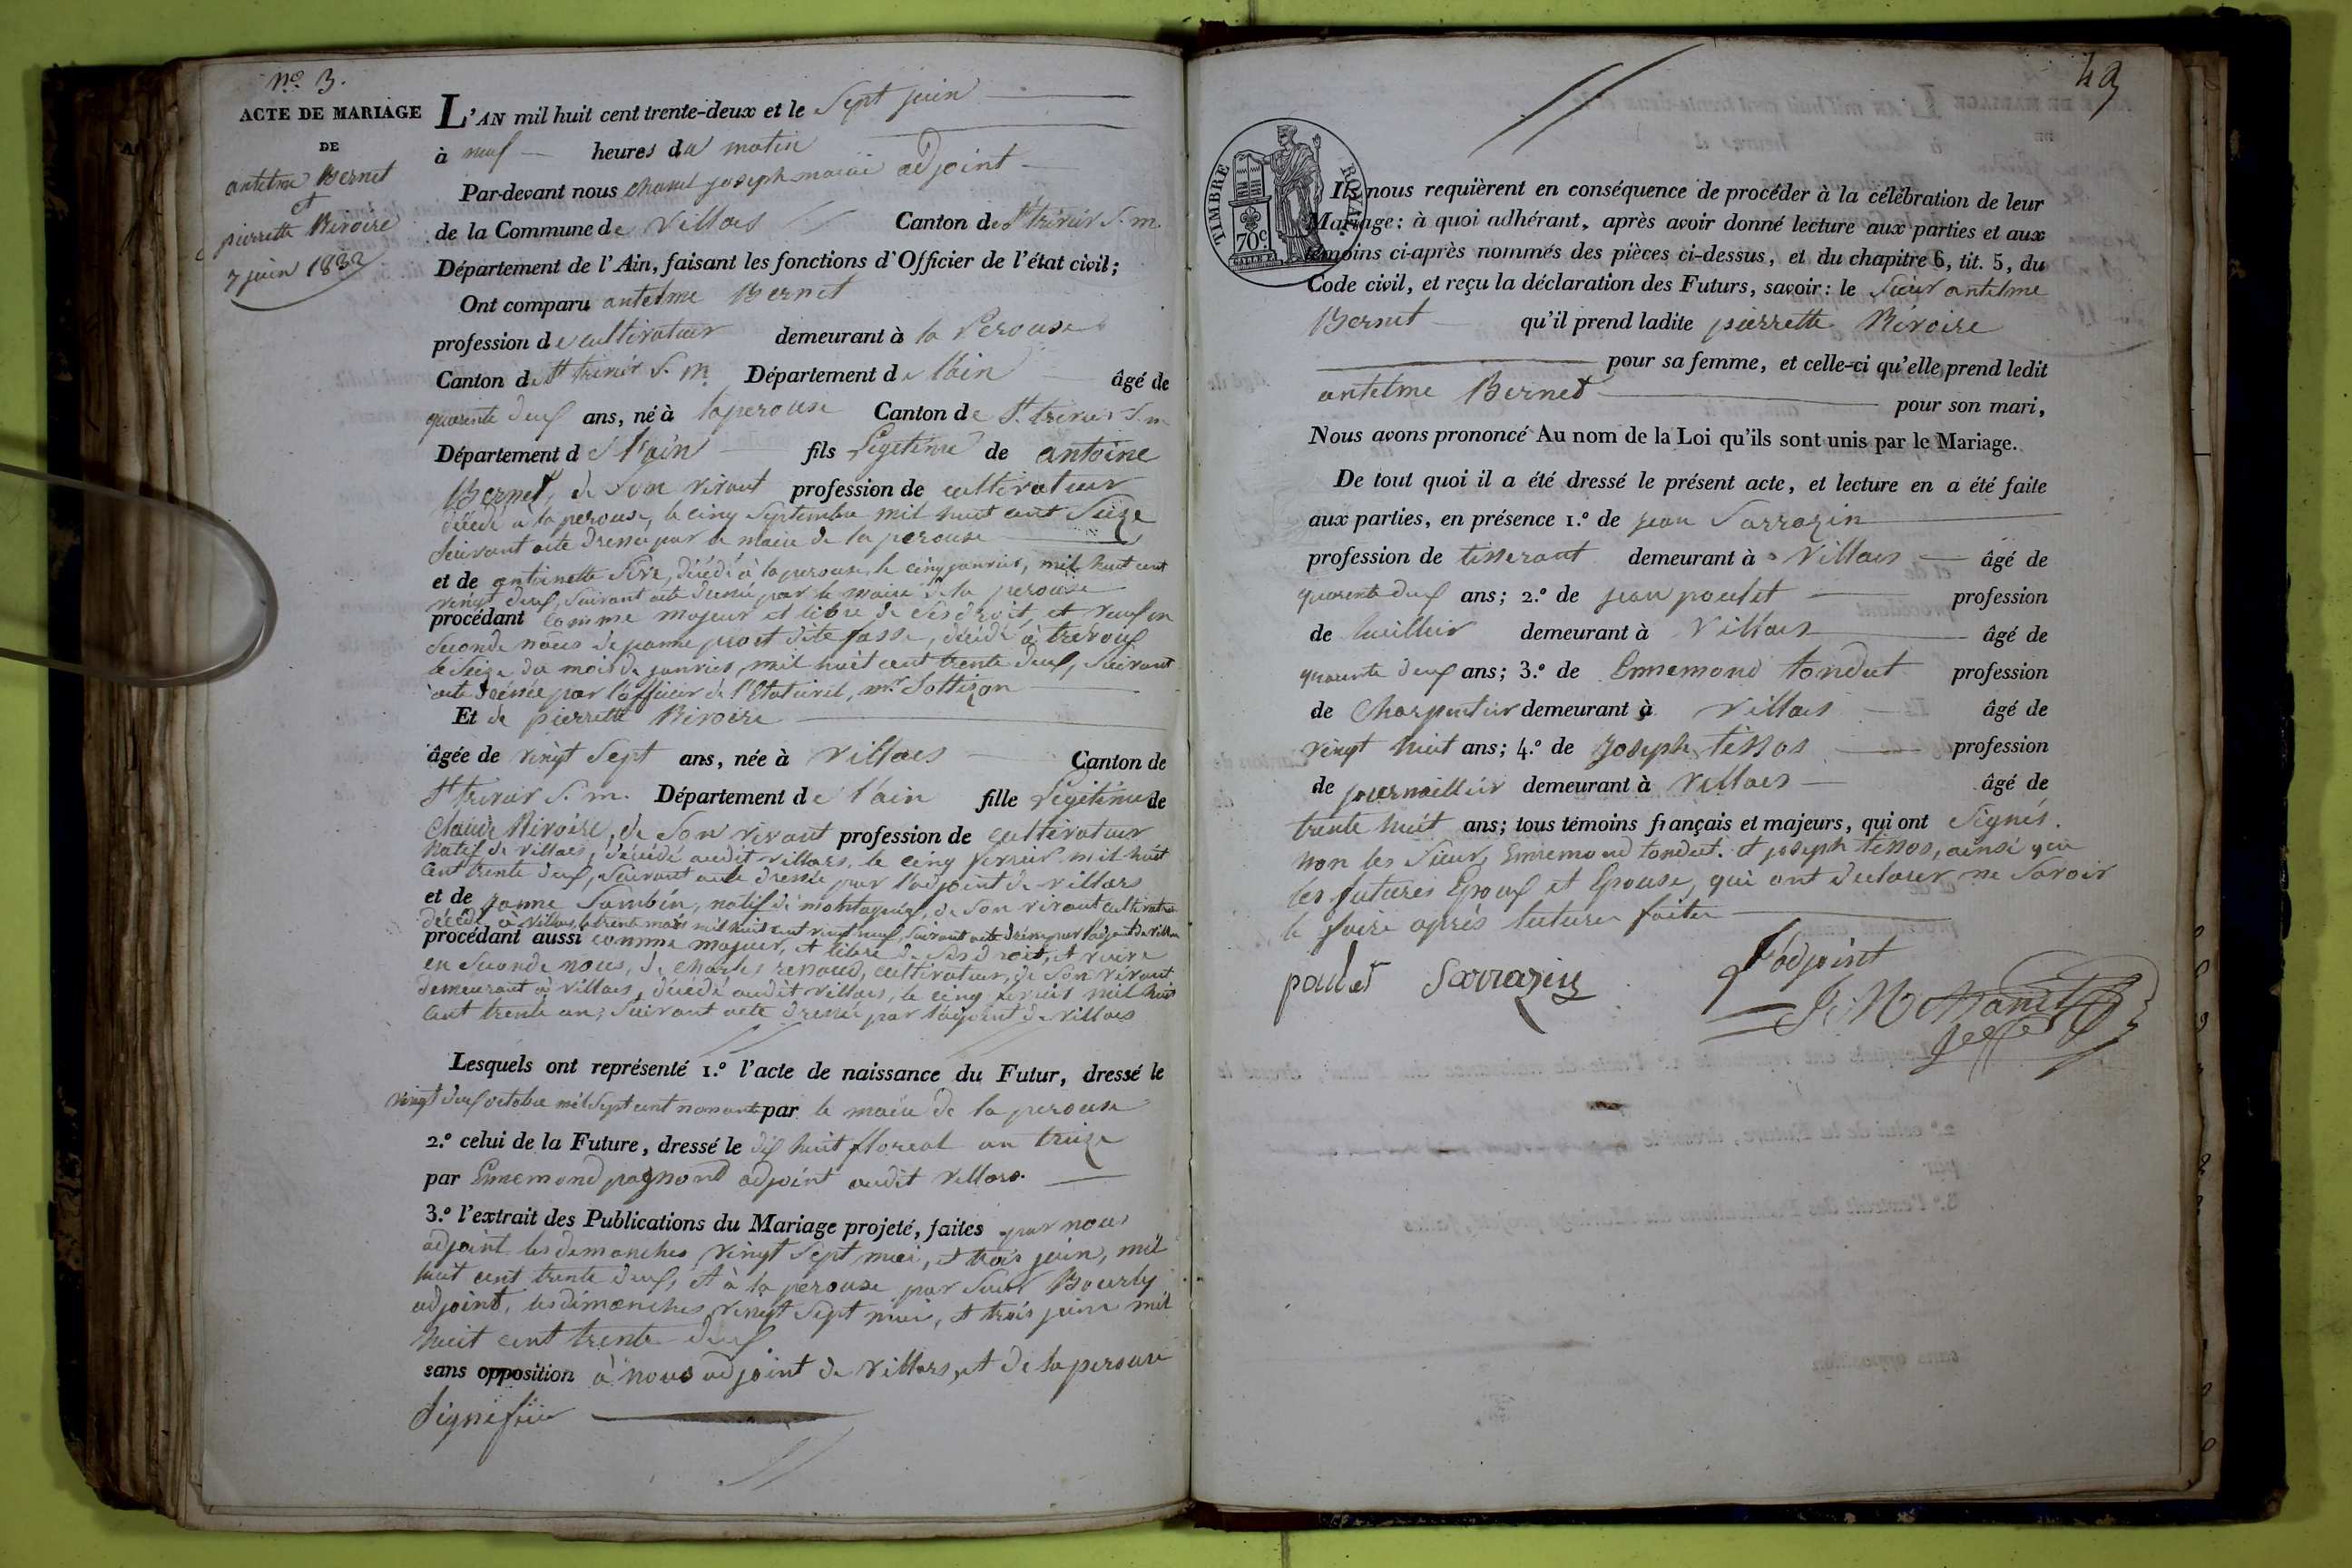 n.º 3.
ACTE DE MARIAGE
DE
antelme Bernet
et
pierrette Rivoire
7 juin 1832
L'AN mil huit cent trente-deux et le Sept juin
à neuf heures du matin
Par-devant nous joseph marie adjoint
de la Commune de Villars Canton de St trivier S. m.
Département de l'Ain, faisant les fonctions d'Officier de l'état civil;
Ont comparu antelme Bernet
profession de cultivateur demeurant à la Perouse
Canton de St trivier S. m. Département de l'ain âgé de
quarente deux ans, né à laperouse Canton de St. trivier S. m
Département de l'ain fils Legitime de antoine
Bernet, de Son vivant profession de cultivateur
décédé a la perouse, le cinq Septembre mil huit cent Seize
Suivant acte dressé par le maire de la perouse
et de antoinette décédé à la perouse, le cinq janvier, mil huit cent
vingt deux, Suivant acte dressé par le maire de la perouse
procédant comme majeur et libre de Ses droit, et veuf en
Seconde nôces de janne dite décédé à trevoux
le Seize du mois de janvier, mil huit cent trente deux, Suivant
acte dressée par l'officier de l'Etat civil, mr.
Et de pierrette Rivoire
âgée de vingt Sept ans, née à Villars Canton de
St trivier S. m. Département de l'ain fille Legitime de
Claude Rivoire, de Son vivant profession de cultivateur
Natif de Villars, décédé audit Villars, le cinq fevrier mil huit
cent trente deux, Suivant acte dressé par l'adjoint de villars
et de janne Sambin, natif de de Son vivant cultivateur
décédé à Villars, le trente mars mil huit cent vingt neuf, Suivant acte dréssé par l'adjoint de Villars
procédant aussi comme majeur, et libre de Ses droit, et veuve
en Seconde noces, de Charles renaud, cultivateur, de Son vivant
demeurant à Villars, décédé audit Villars, le cinq fevrier mil huit
cent trente un, Suivant acte dressé par l'agoint de Villars
Lesquels ont représenté 1.º l'acte de naissance du Futur, dressé le
vingt deux octobre mil Sept cent nonante par le maire de la perouse
2.º celui de la Future, dressé le dix huit floreal an treize
par Ennemond pagnond adjoint audit Villars.
3.º l'extrait des Publications du Mariage projeté, faites par nous
adjoint les dimanches, vingt Sept mai, et trois juin, mil
huit cent trente deux, et à la perouse par Sieur Bourly
adjoint, les dimanches, vingt Sept mai, et trois juin mil
huit cent trente deux
sans opposition à nous adjoint de Villars, et de la perouse
Signifiée
49
TIMBRE ROYAL
70c
Ils nous requièrent en conséquence de procéder à la célébration de leur
Mariage: à quoi adhérant, après avoir donné lecture aux parties et aux
témoins ci-après nommés des pièces ci-dessus, et du chapitre 6, tit. 5, du
Code civil, et reçu la déclaration des Futurs, savoir: le Sieur antelme
Bernet qu'il prend ladite pierrette Rivoire
pour sa femme, et celle-ci qu'elle prend ledit
antelme Bernet pour son mari,
Nous avons prononcé Au nom de la Loi qu'ils sont unis par le Mariage.
De tout quoi il a été dressé le présent acte, et lecture en a été faite
aux parties, en présence 1.º de jean Sarrazin
profession de tisserant demeurant à Villars âgé de
quarente deux ans; 2.º de jean poulet profession
de demeurant à Villars âgé de
quarente deux ans; 3.º de Ennemond tondut profession
de Charpentier demeurant à Villars âgé de
vingt huit ans; 4.º de Joseph tissos profession
de journaillier demeurant à Villars âgé de
trente huit ans; tous témoins français et majeurs, qui ont Signés.
non les Sieurs, Ennemond tondut. et joseph tissos, ainsi que
les futures Epoux et Epouse, qui ont declarer ne Savoir
le faire après lecture faite
paulet Sarrazin
L'adjoint